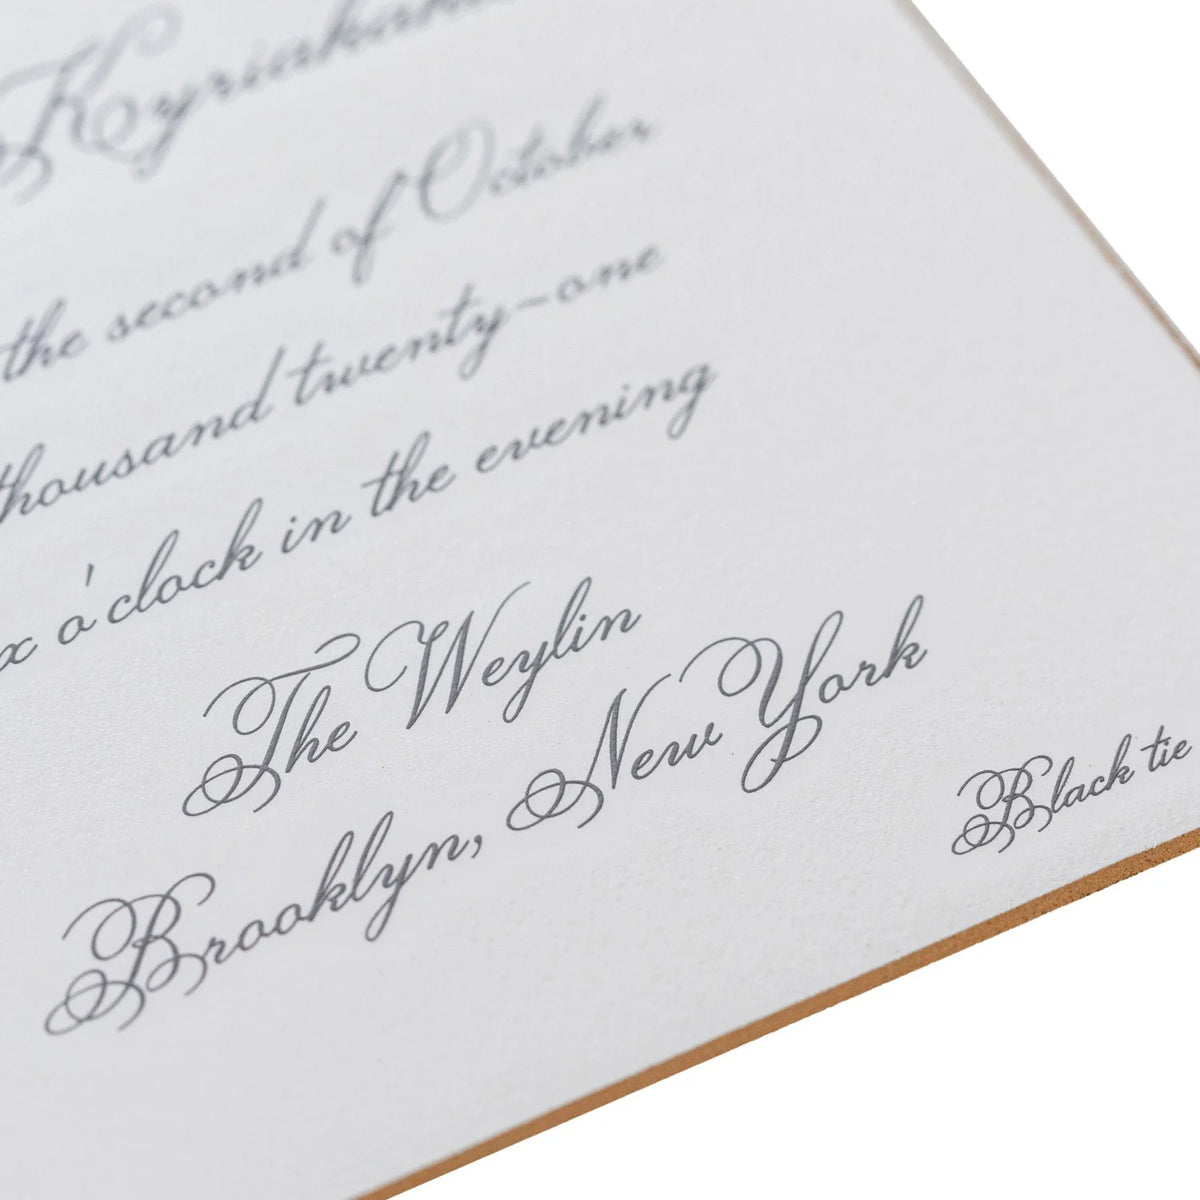 the second of October
thousand twenty-one
x o'clock in the evening
The Weylin
Brooklyn, New York
Black tie